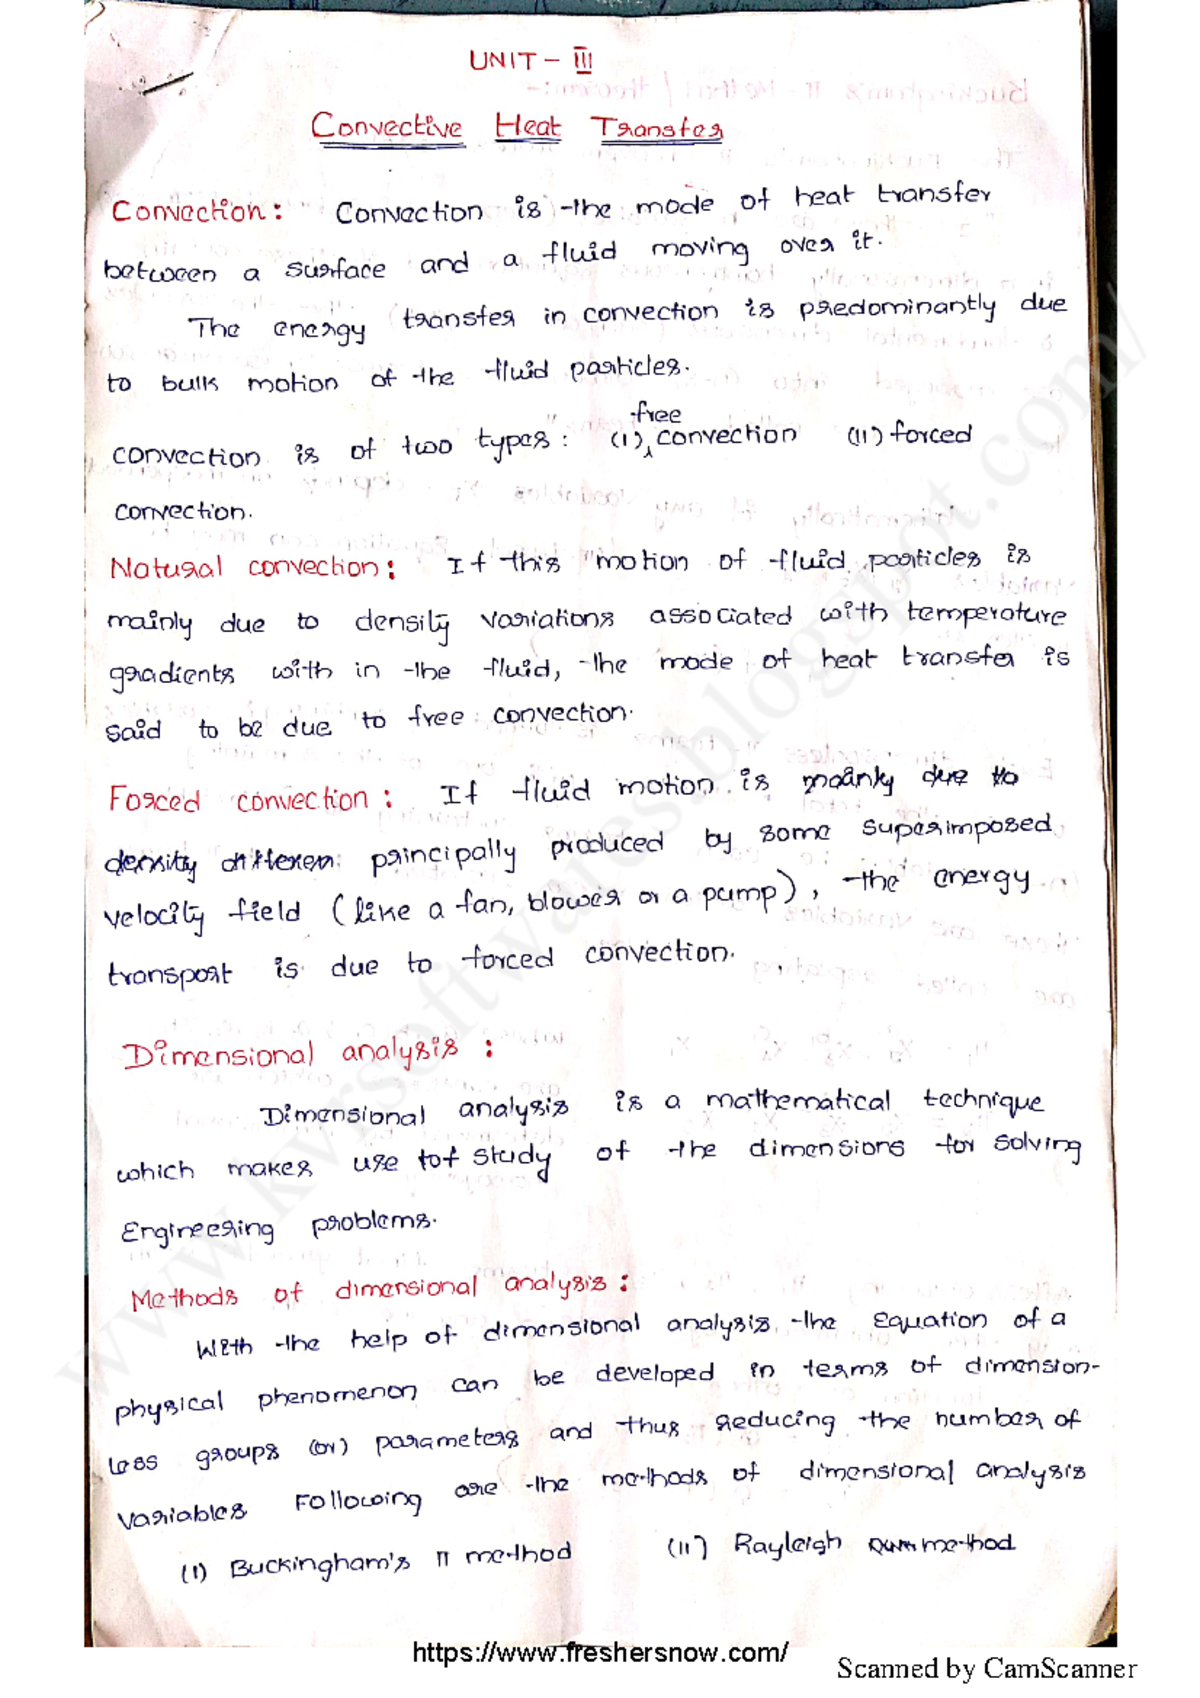 UNIT - III
Convective Heat Transfer
Convection: Convection is the mode of heat transfer
between a surface and a fluid moving over it.
The energy transfer in convection is predominantly due
to bulk motion of the fluid particles.
convection is of two types: (I) free convection (II) forced
convection.
Natural convection: If this motion of fluid particles is
mainly due to density variations associated with temperature
gradients with in the fluid, the mode of heat transfer is
said to be due to free convection.
Forced convection: If fluid motion is mainly due to
density differen principally produced by some superimposed
velocity field (like a fan, blower or a pump), the energy
transport is due to forced convection.
Dimensional analysis:
Dimensional analysis is a mathematical technique
which makes use of study of the dimensions for solving
Engineering problems.
Methods of dimensional analysis:
With the help of dimensional analysis the Equation of a
physical phenomenon can be developed in terms of dimension-
less groups (or) parameters and thus reducing the number of
variables Following are the methods of dimensional analysis
(I) Buckingham's π method (II) Rayleigh method
https://www.freshersnow.com/
Scanned by CamScanner
www.kvrsoftwares.blogspot.com/